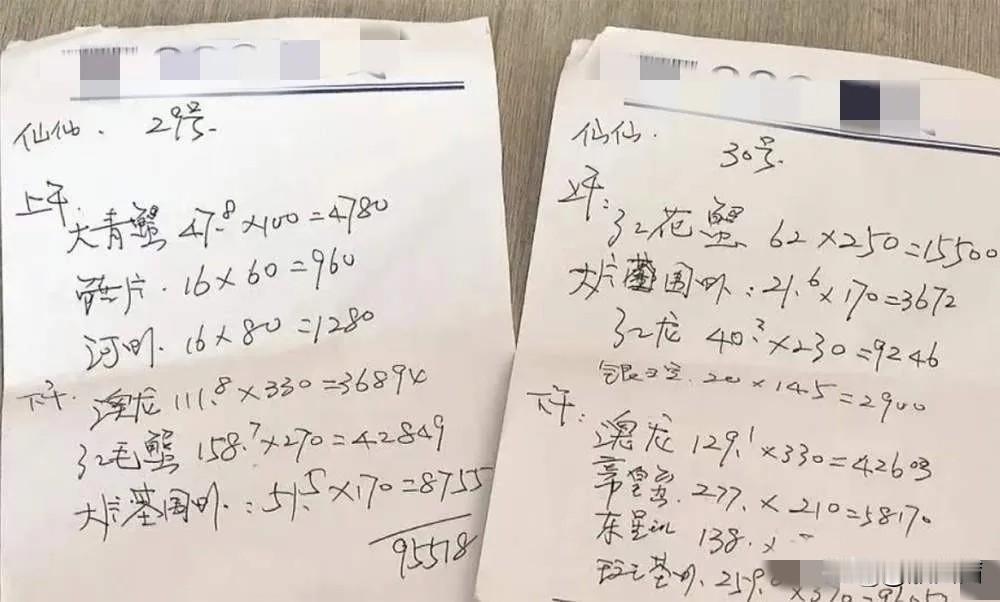 仙仙. 29号.
上午.
大青蟹 47.8×100=4780
片. 16×60=960
河虾. 16×80=1280
下午. 澳龙 111.8×330=36894
红毛蟹 158.7×270=42849
大片基围虾.: 51.5×170=8755
95518
仙仙. 30号.
上午:
红花蟹 62×250=15500
大片基围虾: 21.6×170=3672
红龙 40.2×230=9246
20×145=2900
下午:
澳龙 129.1×330=42603
277.×210=58170
东星 138.×
基虾. 259.